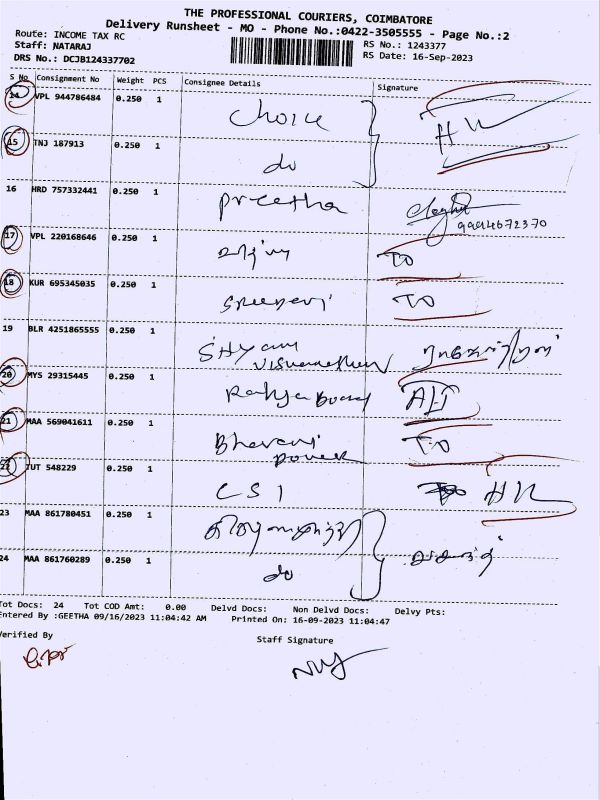 THE PROFESSIONAL COURIERS, COIMBATORE
Delivery Runsheet - MO - Phone No.:0422-3505555 - Page No.:2
Route: INCOME TAX RC
RS No.: 1243377
Staff: NATARAJ
RS Date: 16-Sep-2023
DRS No.: DCJB124337702
S No Consignment No Weight PCS Consignee Details Signature
14 VPL 944786484 0.250 1 choice HK
15 TNJ 187913 0.250 1 do
16 HRD 757332441 0.250 1 preetha
17 VPL 220168646 0.250 1 TO
18 KUR 695345035 0.250 1 Sreedevi TO
19 BLR 4251865555 0.250 1 SHyam
20 MYS 29315445 0.250 1
21 MAA 569041611 0.250 1 Bhavani power TO
22 TUT 548229 0.250 1 CSI HK
23 MAA 861780451 0.250 1
24 MAA 861760289 0.250 1 do
Tot Docs: 24 Tot COD Amt: 0.00 Delvd Docs: Non Delvd Docs: Delvy Pts:
Entered By :GEETHA 09/16/2023 11:04:42 AM Printed On: 16-09-2023 11:04:47
Verified By Staff Signature